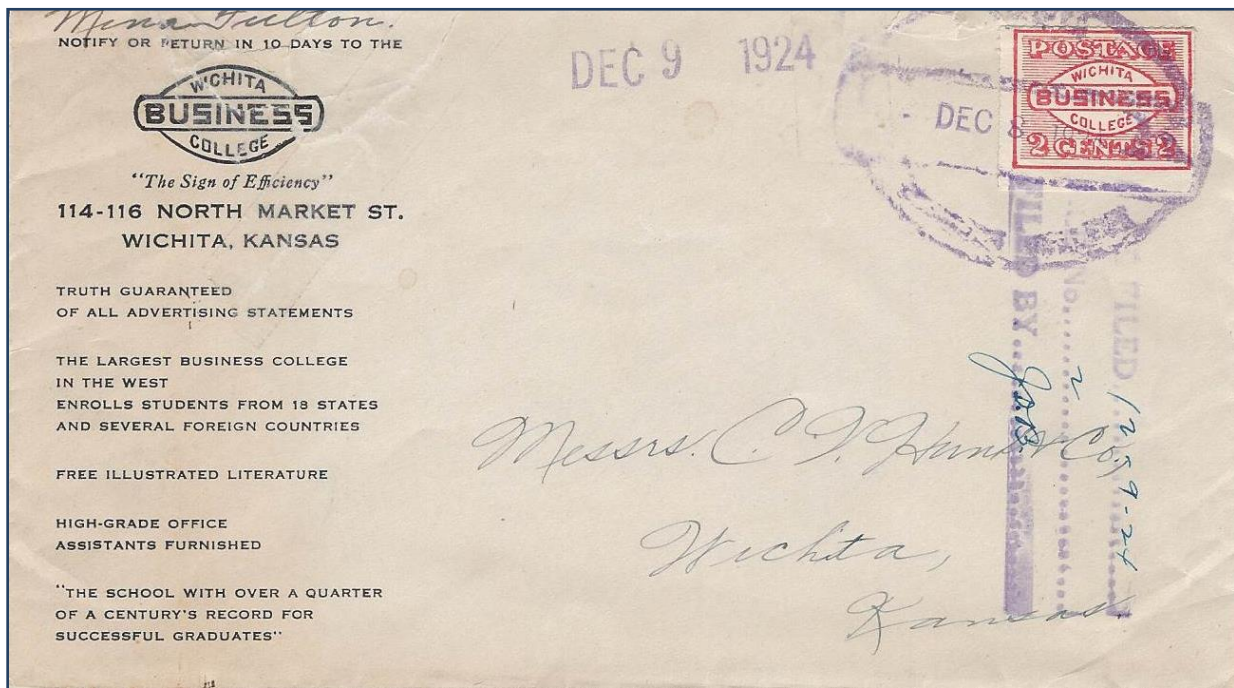 Mina Fulton.
NOTIFY OR RETURN IN 10 DAYS TO THE
WICHITA
BUSINESS
COLLEGE
"The Sign of Efficiency"
114-116 NORTH MARKET ST.
WICHITA, KANSAS
TRUTH GUARANTEED
OF ALL ADVERTISING STATEMENTS
THE LARGEST BUSINESS COLLEGE
IN THE WEST
ENROLLS STUDENTS FROM 18 STATES
AND SEVERAL FOREIGN COUNTRIES
FREE ILLUSTRATED LITERATURE
HIGH-GRADE OFFICE
ASSISTANTS FURNISHED
"THE SCHOOL WITH OVER A QUARTER
OF A CENTURY'S RECORD FOR
SUCCESSFUL GRADUATES"
DEC 9 1924
POSTAGE
WICHITA
BUSINESS
COLLEGE
2 CENTS 2
DEC 8
Messrs. C. & Co.,
Wichita,
Kansas
FILED 12-9-24
No. 2
FILED BY